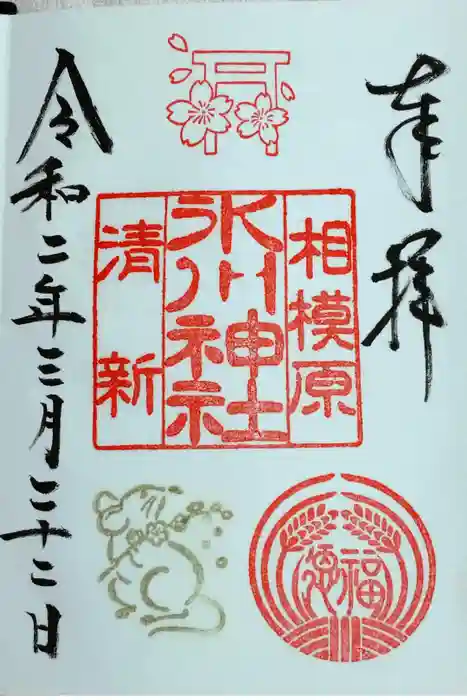 奉拝
相模原
氷川神社
清新
福徳
令和二年三月二十二日